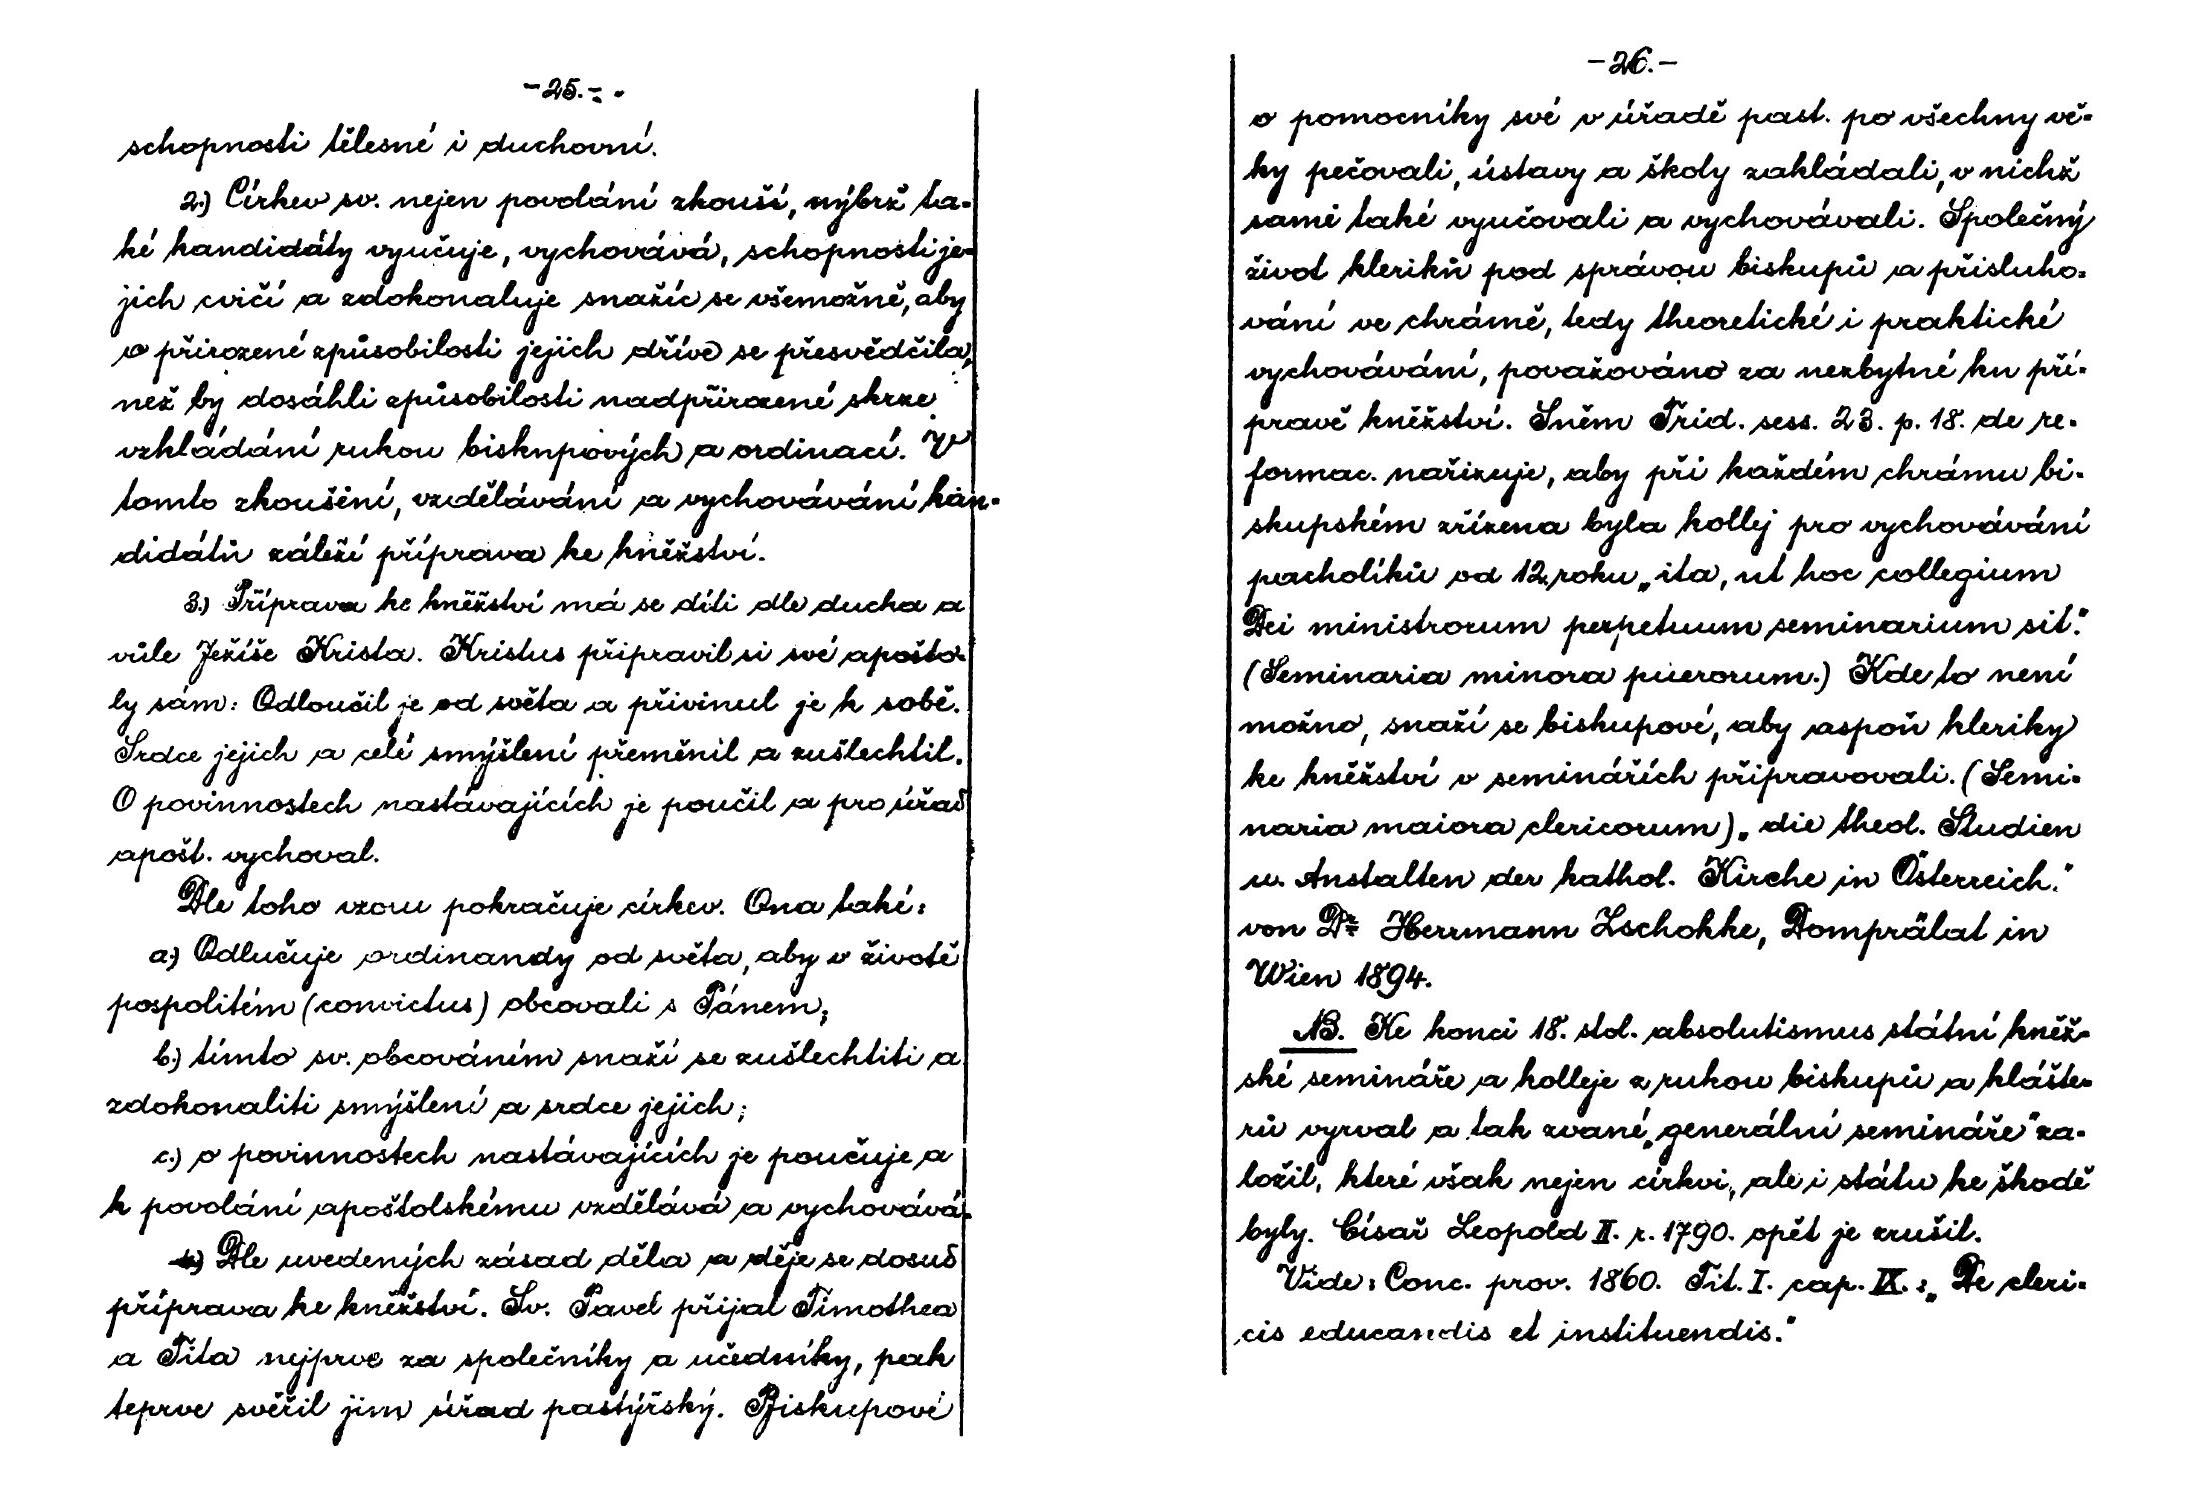 -25.-
schopnosti tělesné i duchovní.
2.) Církev sv. nejen povolání zkouší, nýbrž ta-
ké kandidáty vyučuje, vychovává, schopnosti je-
jich cvičí a zdokonaluje snažíc se všemožně, aby
o přirozené způsobilosti jejich dříve se přesvědčila,
než by dosáhli způsobilosti nadpřirozené skrze
vzkládání rukou biskupových a ordinací. V
tomto zkoušení, vzdělávání a vychovávání kan-
didátů záleží příprava ke kněžství.
3.) Příprava ke kněžství má se díti dle ducha a
vůle Ježíše Krista. Kristus připravil si své apošto-
ly sám: Odloučil je od světa a přivinul je k sobě.
Srdce jejich a celé smýšlení přeměnil a zušlechtil.
O povinnostech nastávajících je poučil a pro úřad
apošt. vychoval.
Dle toho vzoru pokračuje církev. Ona také:
a.) Odlučuje ordinandy od světa, aby v životě
pospolitém (convictus) obcovali s Pánem;
b.) tímto sv. obcováním snaží se zušlechtiti a
zdokonaliti smýšlení a srdce jejich;
c.) o povinnostech nastávajících je poučuje a
k povolání apoštolskému vzdělává a vychovává.
Dle uvedených zásad děla a děje se dosud
příprava ke kněžství. Sv. Pavel přijal Timothea
a Tita nejprve za společníky a učedníky, pak
teprve svěřil jim úřad pastýřský. Biskupové
-26.-
o pomocníky své v úřadě past. po všechny vě-
ky pečovali, ústavy a školy zakládali, v nichž
sami také vyučovali a vychovávali. Společný
život kleriků pod správou biskupů a přisluho-
vání ve chrámě, tedy theoretické i praktické
vychovávání, považováno za nezbytné ku pří-
pravě kněžství. Sněm Trid. sess. 23. p. 18. de re-
formac. nařizuje, aby při každém chrámu bi-
skupském zřízena byla kollej pro vychovávání
pacholíků od 12. roku „ita, ut hoc collegium
Dei ministrorum perpetuum seminarium sit."
(Seminaria minora puerorum.) Kde to není
možno, snaží se biskupové, aby aspoň kleriky
ke kněžství v seminářích připravovali. (Semi-
naria maiora clericorum) „die theol. Studien
u. Anstalten der kathol. Kirche in Österreich."
von Dr. Herrmann Zschokke, Domprälat in
Wien 1894.
NB. Ke konci 18. stol. absolutismus státní kněž-
ské semináře a kolleje z rukou biskupů a klášte-
rů vyrval a tak zvané „generální semináře" za-
ložil, které však nejen církvi, ale i státu ke škodě
byly. Císař Leopold II. r. 1790. opět je zrušil.
Vide: Conc. prov. 1860. Tit. I. cap. IX.: „De cleri-
cis educandis et instituendis."